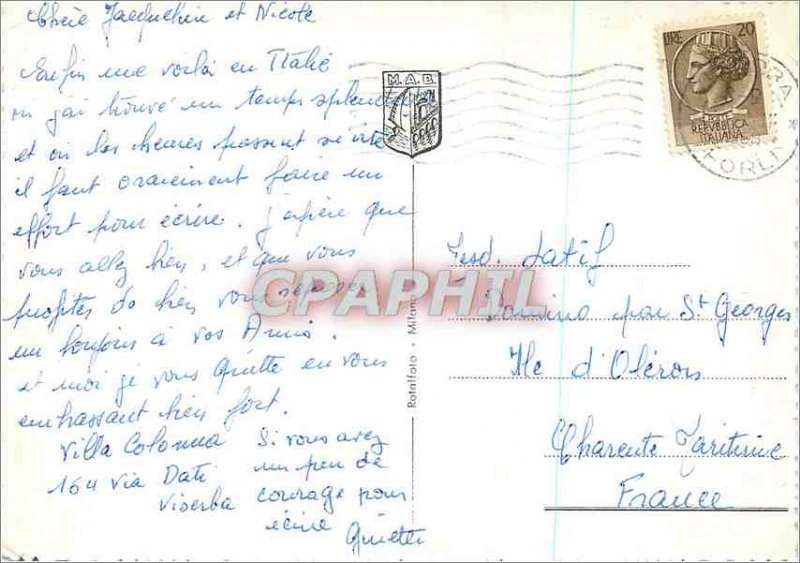 Chère Jacqueline et Nicole
Enfin me voilà en Italie
où j'ai trouvé un temps splendide
et où les heures passent si vite
il faut vraiment faire un
effort pour écrire. J'espère que
vous allez bien, et que vous
profitez de bien vous reposer
un bonjour à vos Amis.
et moi je vous quitte en vous
embrassant bien fort.
Villa Colonna
164 via Dati
Viserba
Si vous avez
un peu de
courage pour
écrire
M.A.B.
Rotalfoto - Milano
CPARPHIL
LIRE 20
POSTE
REPVBBLICA
ITALIANA
FORLI
Latif
Domino par St Georges
Ile d'Oléron
Charente Maritime
France